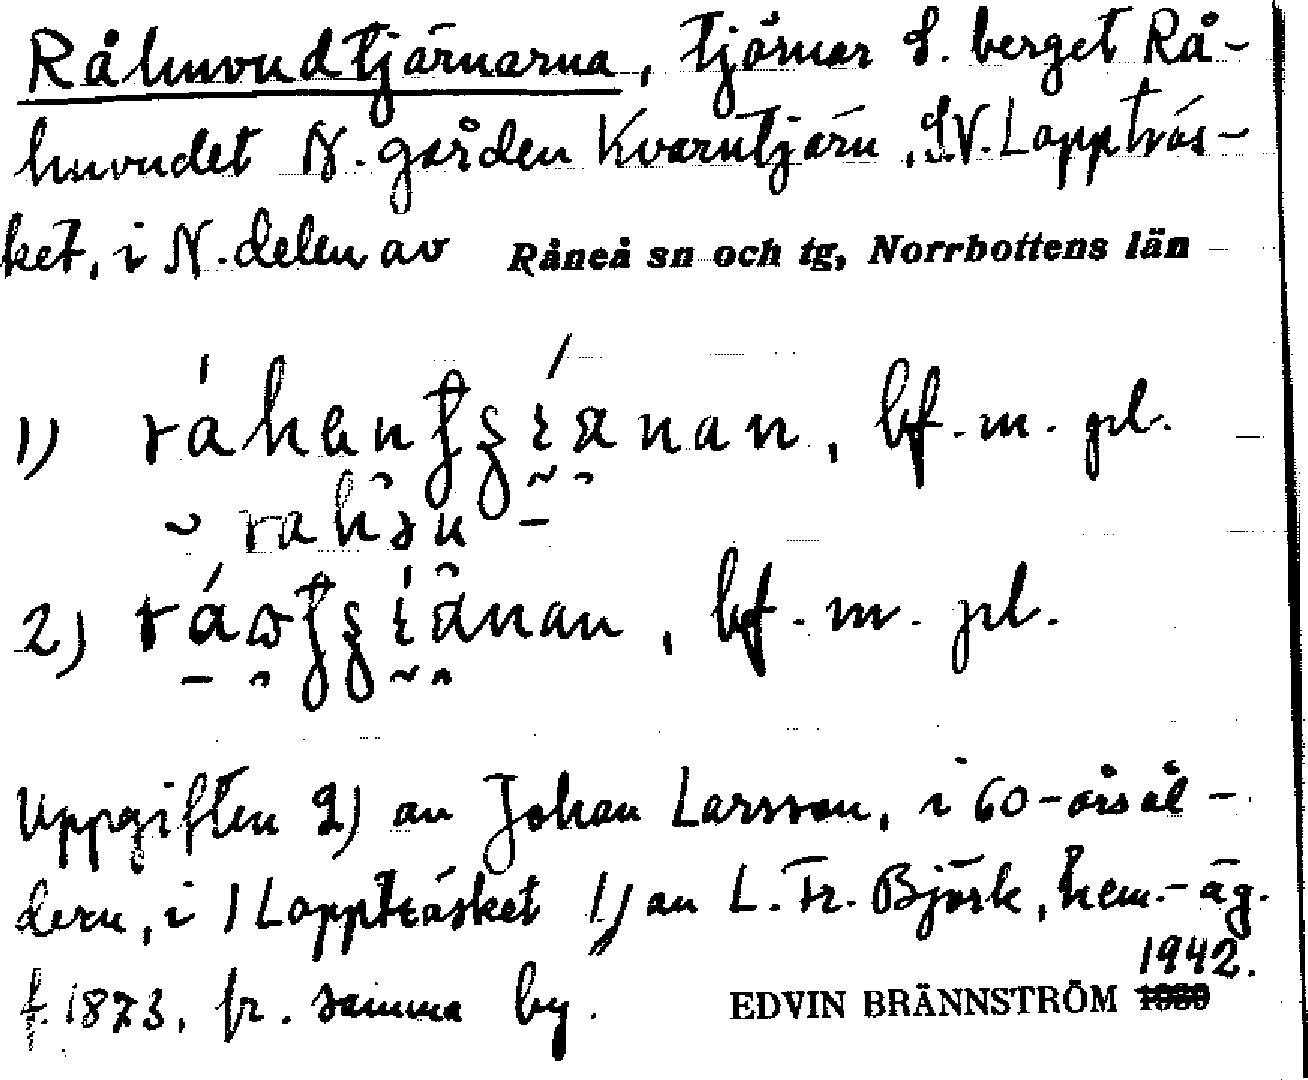 Råhuvudtjärnarna, tjärnar S. berget Rå-
huvudet N. gården Kvarntjärn, SV. Lappträs-
ket, i N. delen av Råneå sn och tg, Norrbottens län
1) bf. m. pl.
2) bf. m. pl.
Uppgiften 2) av Johan Larsson, i 60-årsål-
dern, i Lappträsket 1) av L. Fr. Björk, hem.-äg.
f. 1873, fr. samma by. EDVIN BRÄNNSTRÖM 1942.